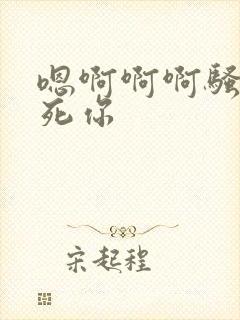 嗯啊啊啊骚
死你
宋起程